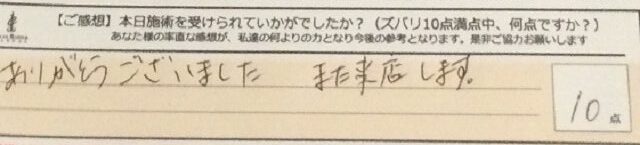 【ご感想】本日施術を受けられていかがでしたか？（ズバリ10点満点中、何点ですか？）
あなた様の率直な感想が、私達の何よりの力となり今後の参考となります。是非ご協力お願いします
ありがとうございました　また来店します。
10点